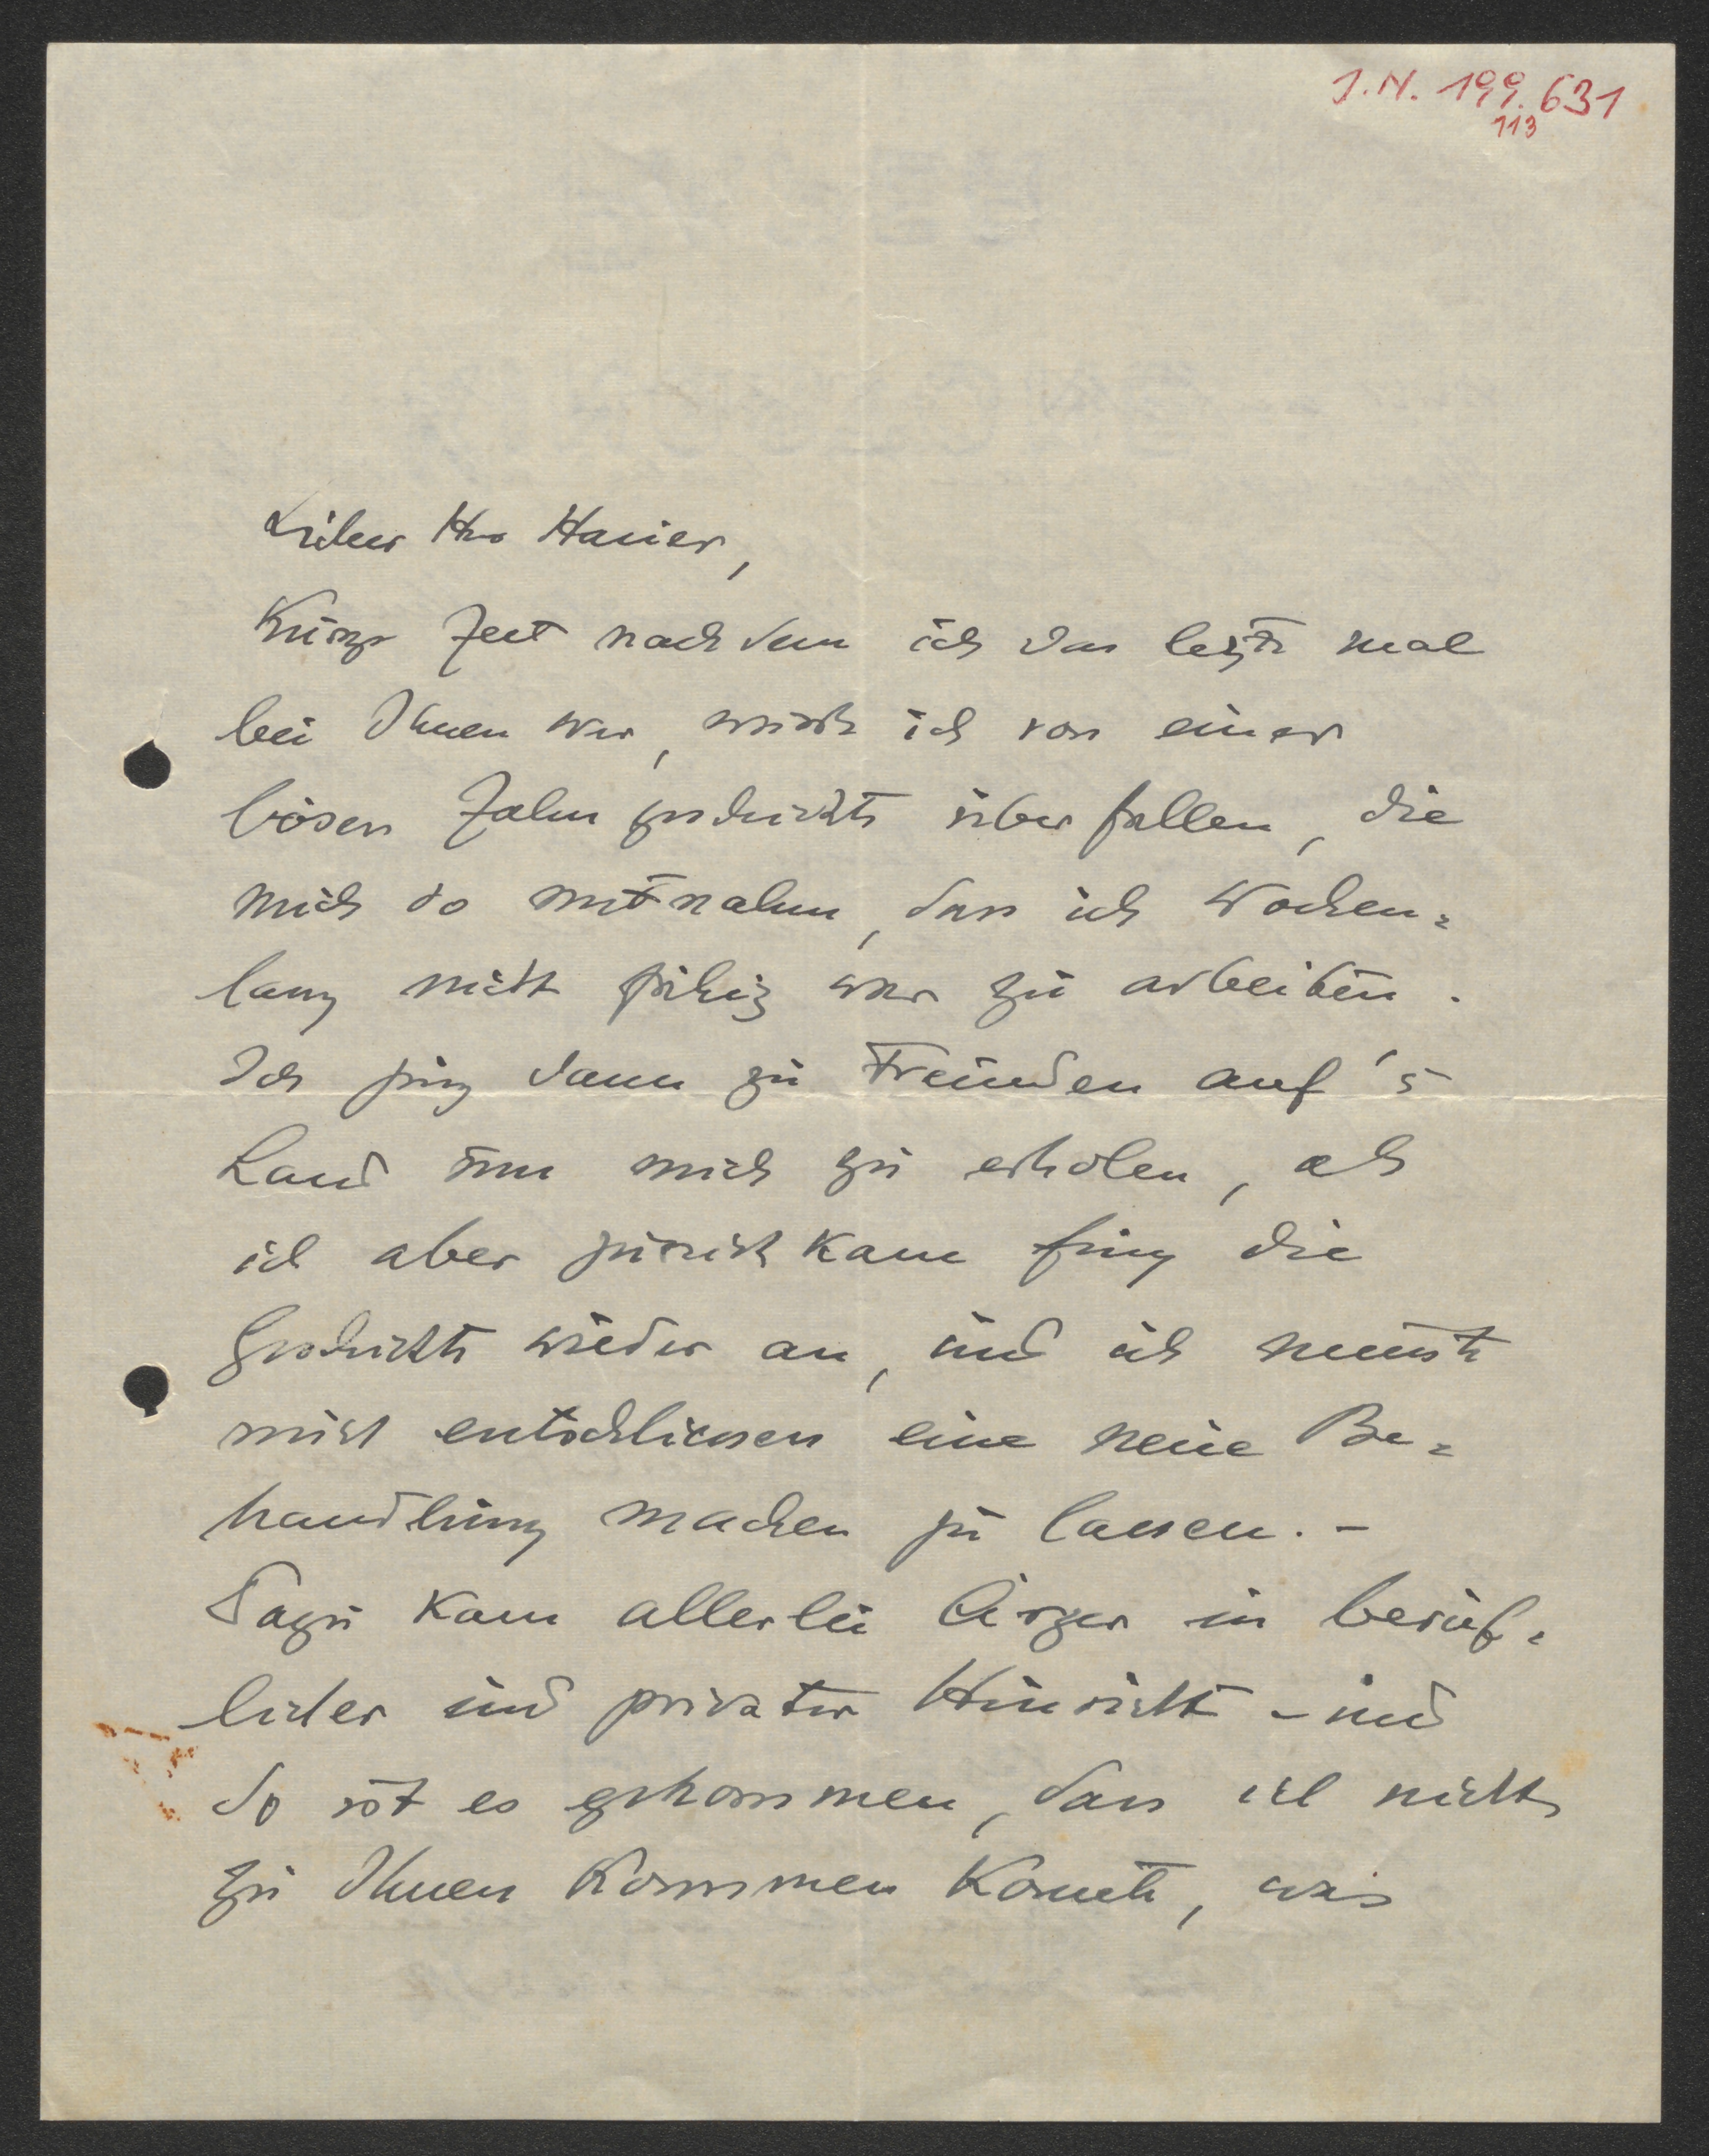 J.N. 199.631
113
Lieber Herr Hauer,
Kurze Zeit nachdem ich das letzte mal
bei Ihnen war, wurde ich von einer
bösen Zahn geschichte überfallen, die
mich so mitnahm, dass ich Wochen=
lang nicht fähig war zu arbeiten.
Ich ging dann zu Freunden auf's
Land um mich zu erholen, als
ich aber zurück kam fing die
Geschichte wieder an, und ich musste
mich entschliessen eine neue Be=
handlung machen zu lassen. –
Dazu kam allerlei Ärger in beruf=
licher und privater Hinsicht – und
so ist es gekommen, dass ich nicht
zu Ihnen kommen konnte, was